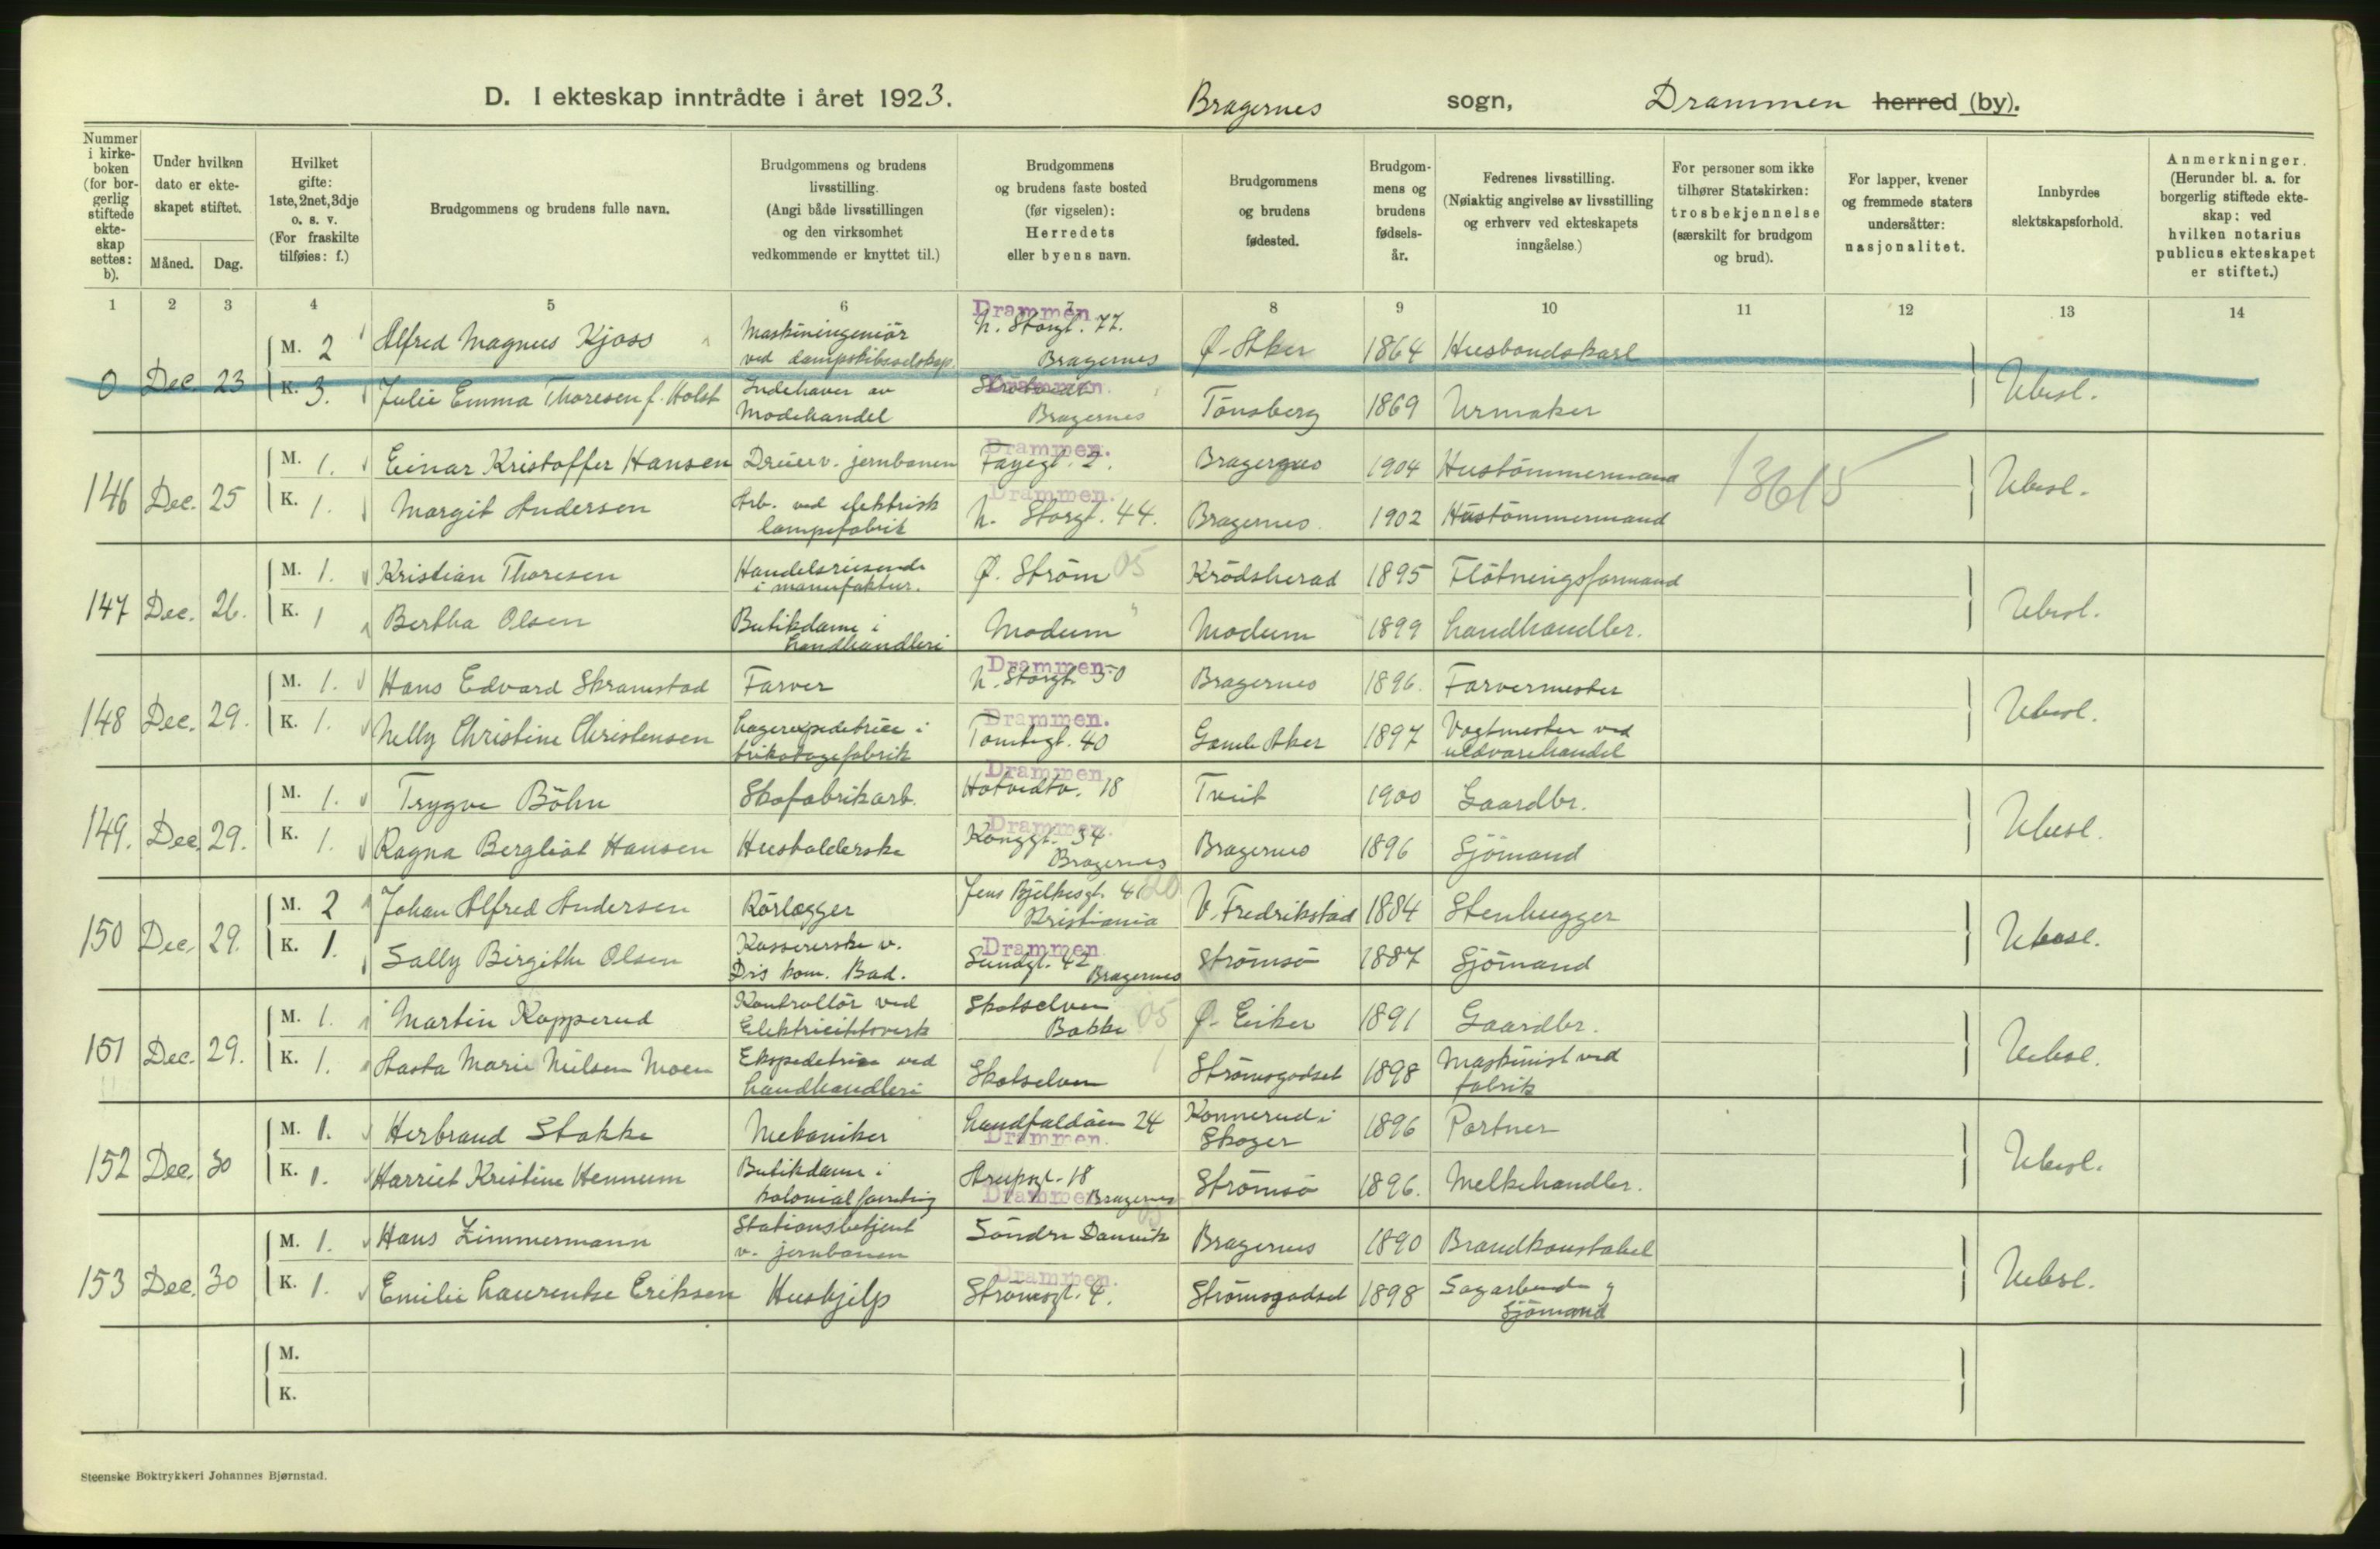 D. I ekteskap inntrådte i året 1923.
Bragernes sogn, Drammen herred (by).
Nummer i kirkeboken (for borgerlig stiftede ekteskap settes: b).
Under hvilken dato er ekteskapet stiftet.
Måned. Dag.
Hvilket gifte: 1ste, 2net, 3dje o. s. v. (For fraskilte tilføies: f.)
Brudgommens og brudens fulle navn.
Brudgommens og brudens livsstilling. (Angi både livsstillingen og den virksomhet vedkommende er knyttet til.)
Brudgommens og brudens faste bosted (før vigselen): Herredets eller byens navn.
Brudgommens og brudens fødested.
Brudgommens og brudens fødselsår.
Fedrenes livsstilling. (Nøiaktig angivelse av livsstilling og erhverv ved ekteskapets inngåelse.)
For personer som ikke tilhører Statskirken: trosbekjennelse (særskilt for brudgom og brud).
For lapper, kvener og fremmede staters undersåtter: nasjonalitet.
Innbyrdes slektskapsforhold.
Anmerkninger. (Herunder bl. a. for borgerlig stiftede ekteskap: ved hvilken notarius publicus ekteskapet er stiftet.)
1 2 3 4 5 6 7 8 9 10 11 12 13 14
0 Dec. 23
M. 2 Alfred Magnus Kjoss Maskiningeniör ved dampskibsselskap. Drammen N. Storgt. 77. Bragernes Ø. Aker 1864 Husbondskarl
K. 3. Julie Emma Thoresen f. Holst Indehaver av Modehandel Drammen. Bragernes Tönsberg 1869 Urmaker Ubesl.
146 Dec. 25
M. 1. Einar Kristoffer Hansen v. jernbanen Drammen. Fayegt. 2. Bragernes 1904 Hustömmermand 13615
K. 1. Margit Andersen Arb. ved elektrisk lampefabrik Drammen. N. Storgt. 44. Bragernes. 1902 Hustömmermand Ubesl.
147 Dec. 26.
M. 1. Kristian Thoresen Handelsreisende i manufaktur. Ø. Ström 05 Krödsherad 1895 Flötningsformand
K. 1 Bertha Olsen Butikdame i landhandleri Modum Modum 1899 Landhandler. Ubesl.
148 Dec. 29.
M. 1. Hans Edvard Skramstad Farver Drammen. N. Storgt. 50 Bragernes 1896. Farvermester
K. 1. Nelly Christine Christensen Lagerexpeditrice i trikotagefabrik Drammen. Tomtegt. 40 Gamle Aker 1897 Vagtmester ved uldvarehandel Ubesl.
149. Dec. 29.
M. 1. Trygve Böhn Skofabrikarb. Drammen Hotvedtv. 18 Tveit 1900 Gaardbr.
K. 1. Ragna Bergliot Hansen Husholderske Drammen. Konggt. 34 Bragernes Bragernes 1896 Sjömand Ubesl.
150 Dec. 29.
M. 2 Johan Alfred Andersen Rörlægger Jens Bjelkesgt. Kristiania V. Fredrikstad 1884 Stenhugger
K. 1. Sally Birgithe Olsen Kassererske v. Drs kom. Bad. Drammen Sundgt. 42 Bragernes Strömsö 1887 Sjömand Ubesl.
151 Dec. 29.
M. 1. Martin Kopperud Kontrollör ved Elektricitetsverk Skotselven Bakke 05 Ø. Eiker 1891 Gaardbr.
K. 1. Aasta Marie Nielsen Moen Ekspeditrice ved landhandleri Skotselven Strömsgodset 1898 Maskinist ved fabrik Ubesl.
152 Dec. 30
M. 1. Herbrand Stokke Mekaniker Landfaldöen 24 Drammen. Konnerud i Skoger 1896 Portner
K. 1. Harriet Kristine Hennum Butikdame i kolonialforretning Arupsgt. 18 Drammen Bragernes Strömsö 1896. Melkehandler. Ubesl.
153 Dec. 30
M. 1. Hans Zimmermann Stationsbetjent v. jernbanen Söndre Danvik Bragernes 1890 Brandkonstabel
K. 1. Emilie Laurentse Eriksen Hushjelp Drammen. Strömsgt. 4. Strömsgodset 1898 Sagarbeider og Sjömand Ubesl.
M.
K.
Steenske Boktrykkeri Johannes Bjørnstad.